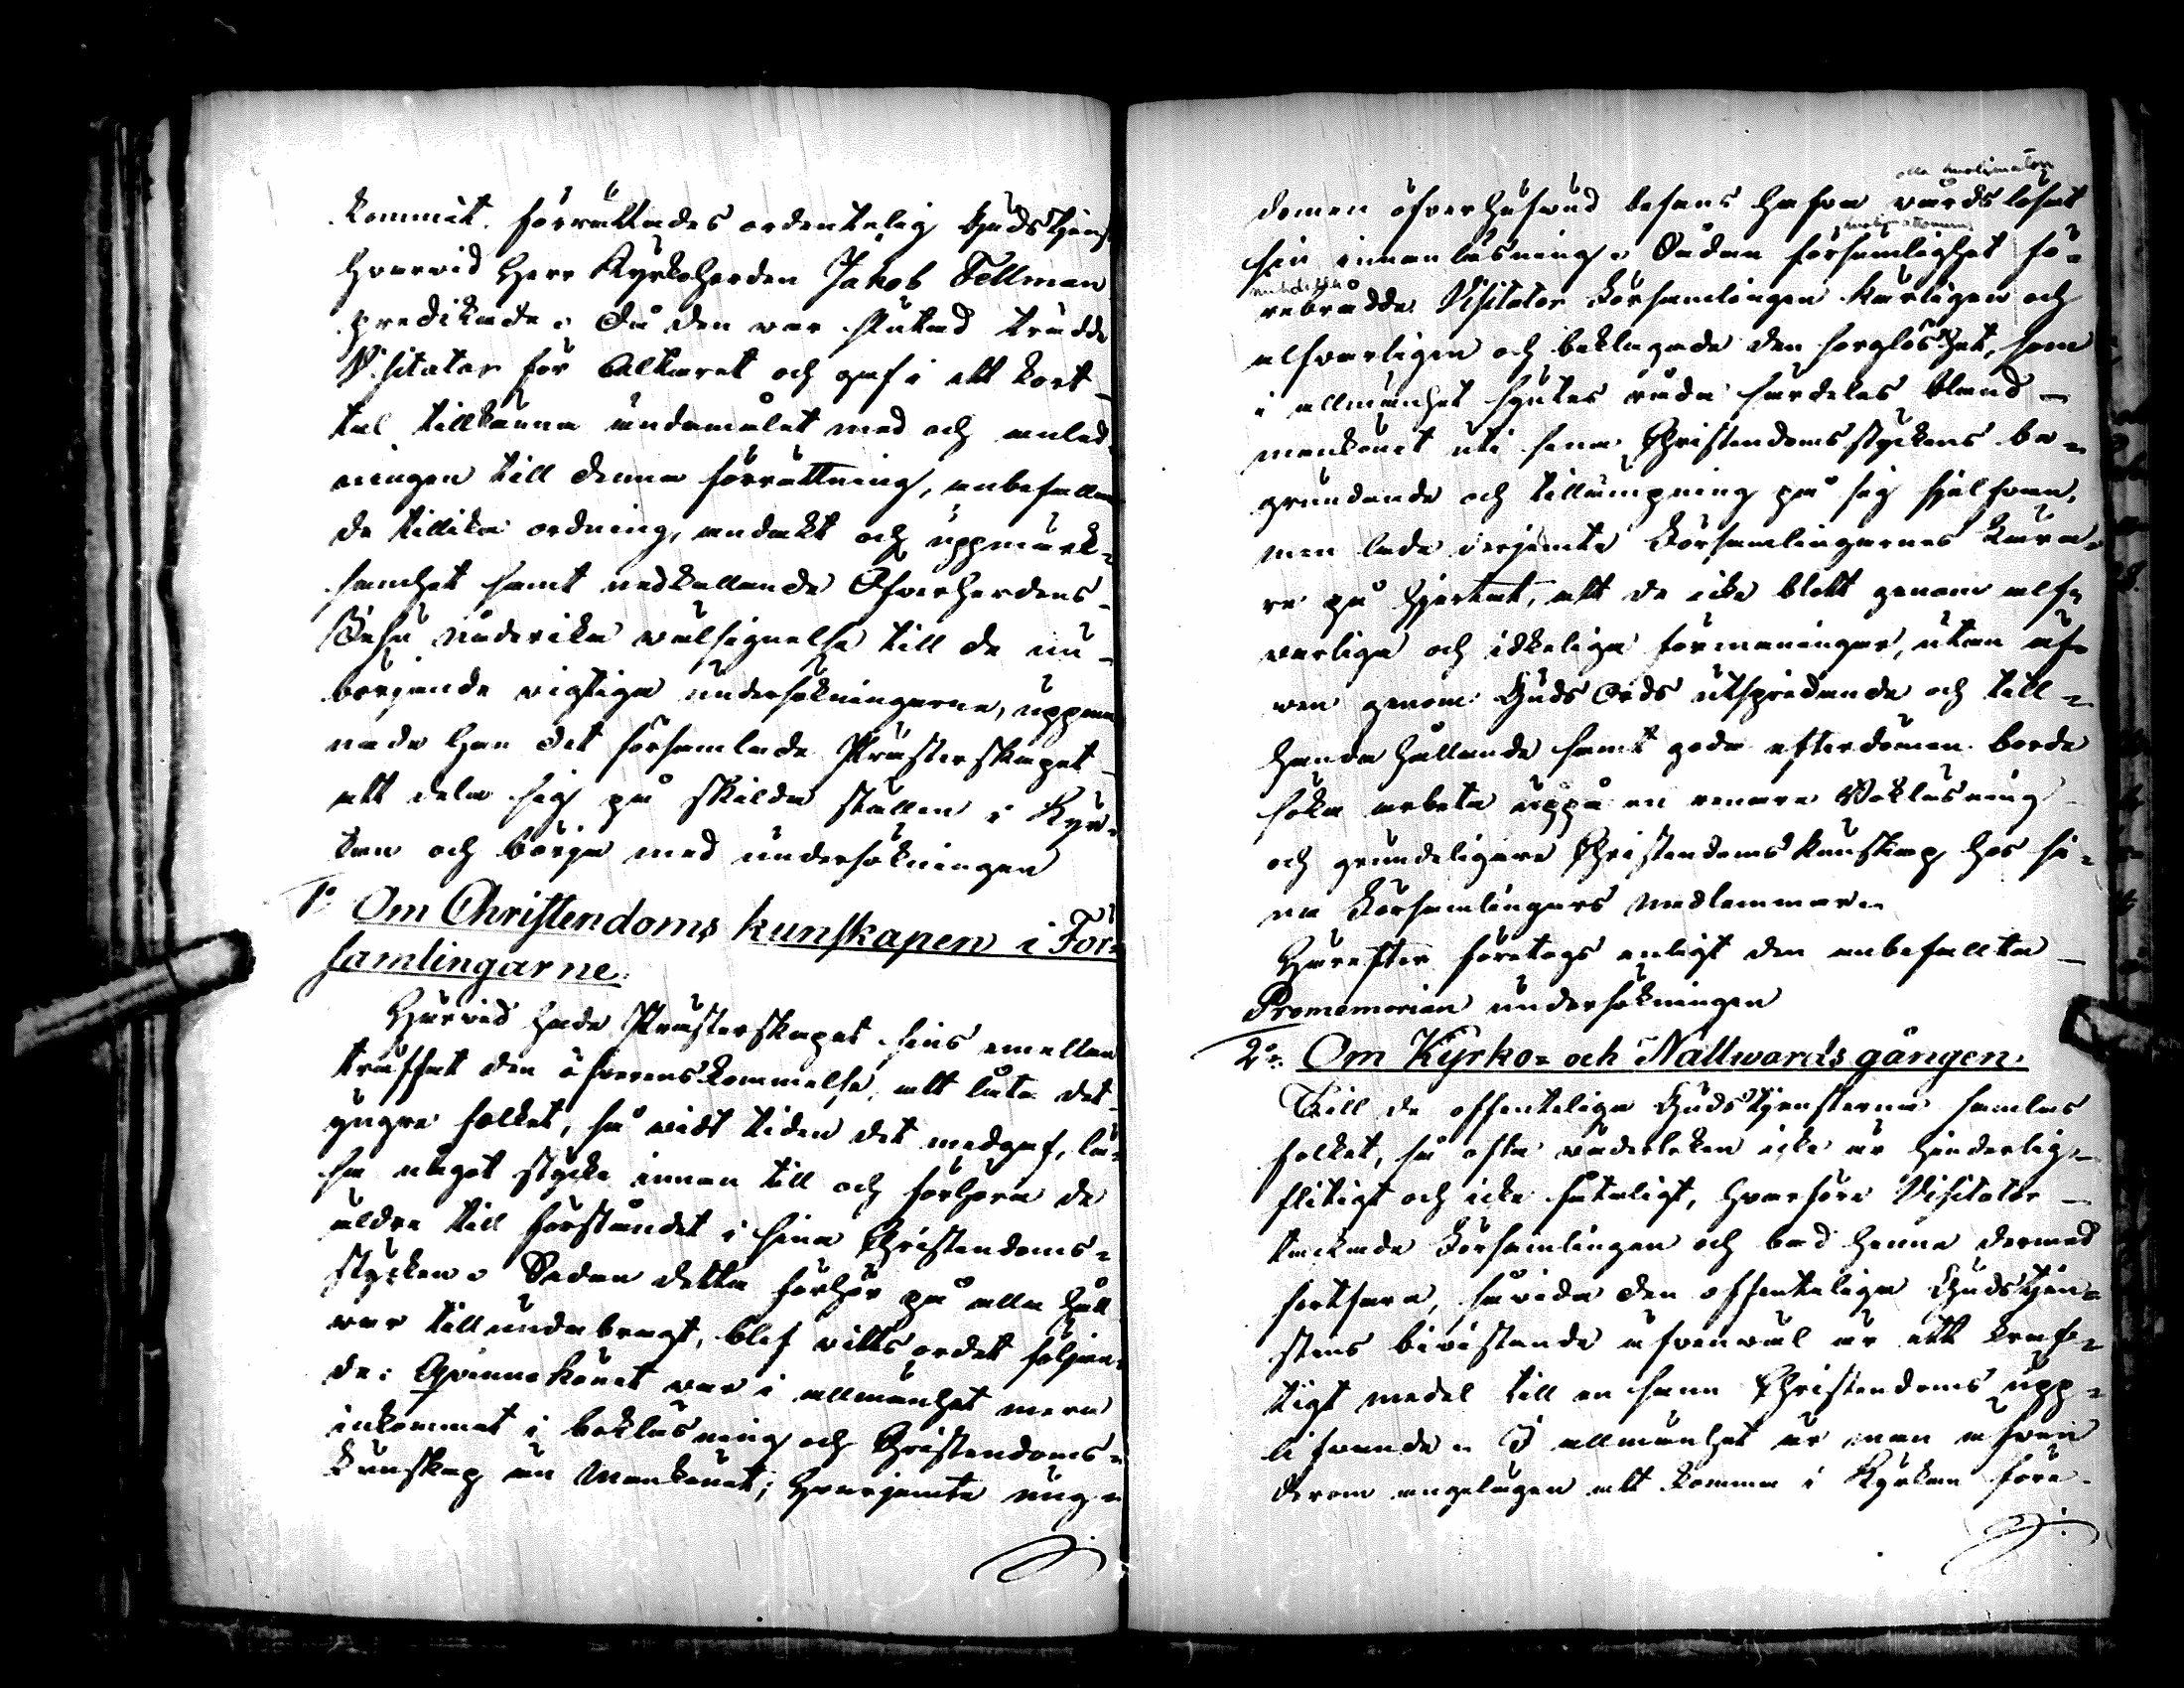 kommit. förrättades ordentelig Gudstjenst
hvarvid Herr Kyrkoherden Jakob Fellman
predikade. Då den var slutad trädde
Visitator för Altaret och gaf i ett kort
tal tillkänna ändamålet med och anled¬
ningen till denna förrättning, anbefallan¬
de tillika ordning, andakt och uppmärk¬
samhet samt nedkallande Öfverherdens
Jesu nåderika välsignelse till de nu
börjande vigtiga undersökningarna, uppma
nade han det församlade Prästerskapet
att dela sig på skilda ställen i Kyr¬
kan och börja med undersökningen
1o Om Christendoms kunskapen i För¬
samlingarne.
Härvid hade Prästerskapet sins emellan
träffat den öfverenskommelse, att låta det
yngre folket, så vidt tiden det medgaf, lä¬
sa något stycke innan till och förhöra de
äldre till förståndet i sina Christendoms¬
stycken. Sedan detta förhör på alla håll
var tilländabragt, blef vittsordet följan¬
de: Qvinnokönet var i allmänhet mera
inkommet i bokläsning och Christendoms¬
kunskap än Mankönet; hvarjemte ung¬
domen öfverhufvud befans hafva vårdslösat
sin innanläsning. Sådan försumlighet fö¬
rebrådde Visitator Församlingen kärligen och
alfvarligen och beklagade den sorglöshet, som
i allmänhet syntes råda särdeles bland
mankönet uti sina Christendomsstyckens be¬
grundande och tillämpning på sig sjelfvan,
men lade derjemte Församlingarnes Lära¬
re på hjertat, att de icke blott genom alf¬
varliga och idkeliga förmaningar, utan äf¬
ven genom Guds Ords utspridande och till¬
handa hållande samt goda efterdömen borde
söka arbeta uppå en renare Bokläsning
och grundeligare Christendoms kunskap hos si¬
na Församlingars medlemmar.
Härefter företogs enligt den anbefallta
Promemorian undersökningen
2o. Om Kyrko- och Nattwards gången.
Till de offentliga Gudstjensterna samlas
folket, så ofta väderleken icke är hinderlig,
flitigt och icke fåtaligt, hvarföre Visitator
tackade Församlingen och bad henne dermed
fortfara, såvida den offentliga Gudstjen¬
stens bivistande äfvenväl är ett kraf¬
tigt medel till en sann Christendoms upp¬
lifvande. I allmänhet är man äfven
derom angelägen att komma i Kyrkan före